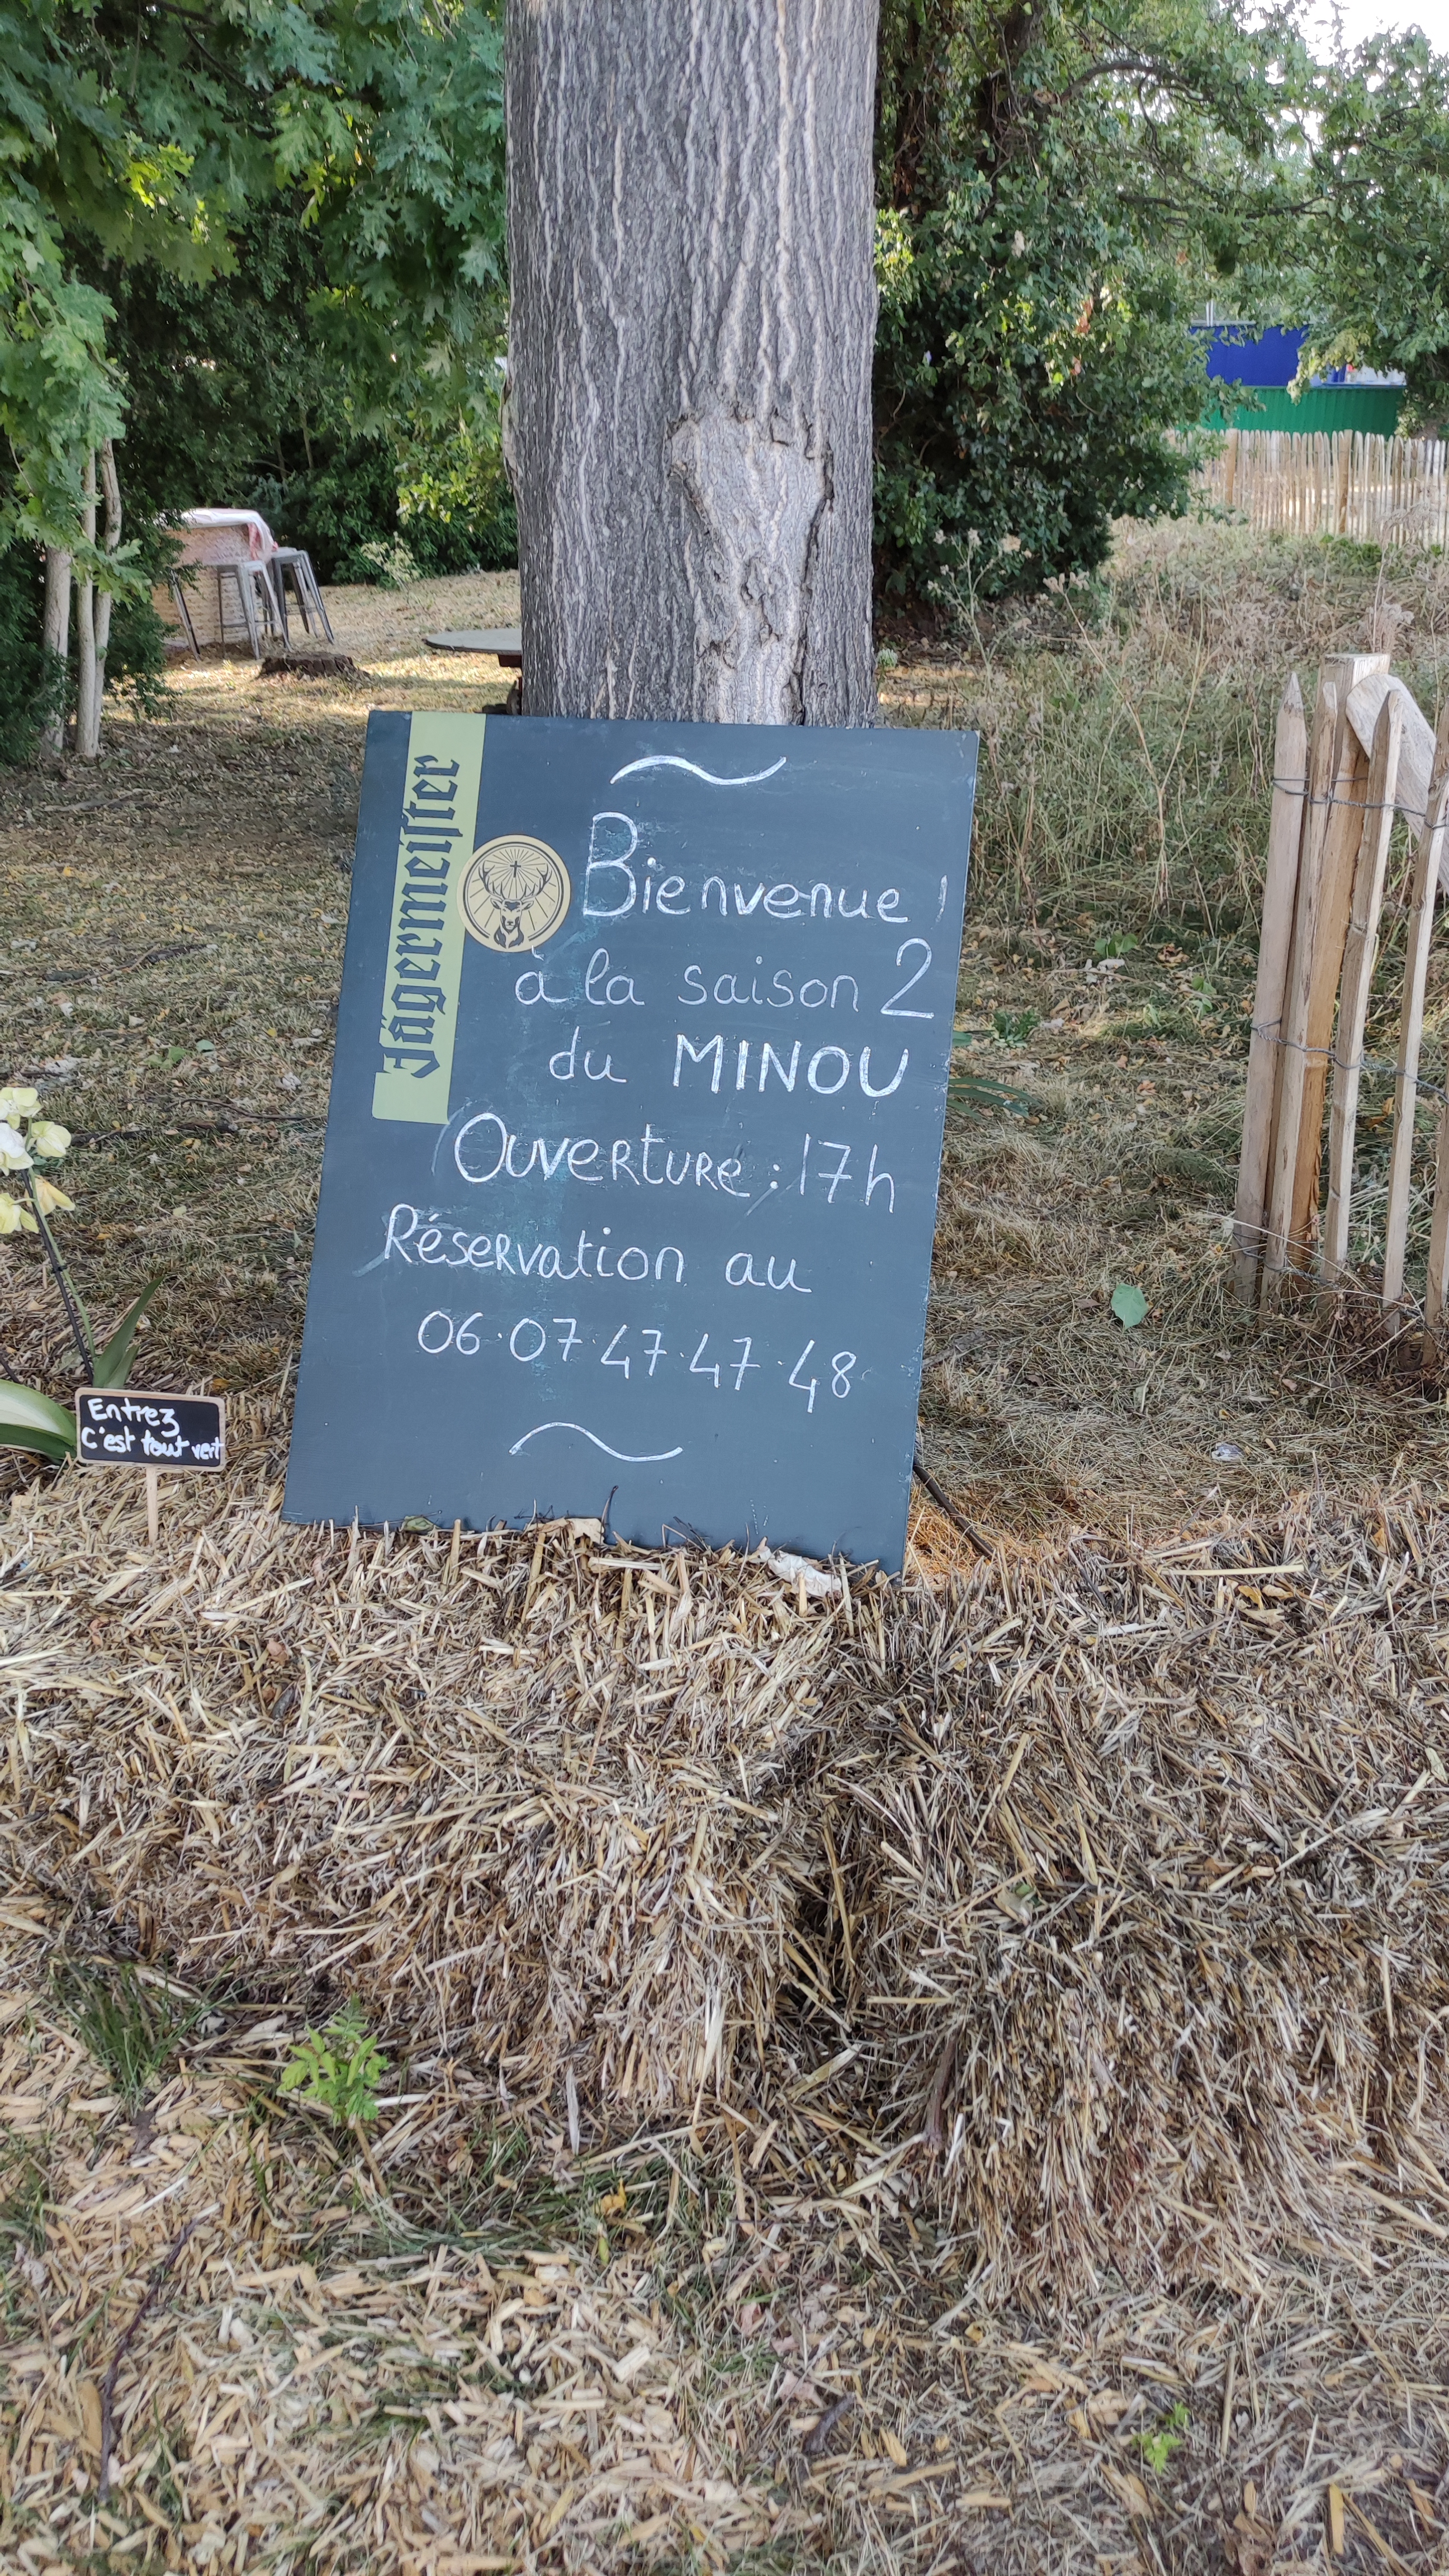 Jägermeiſter
Bienvenue !
à la saison 2
du MINOU
Ouverture : 17h
Réservation au
06.07.47.47.48
Entrez
C'est tout vert